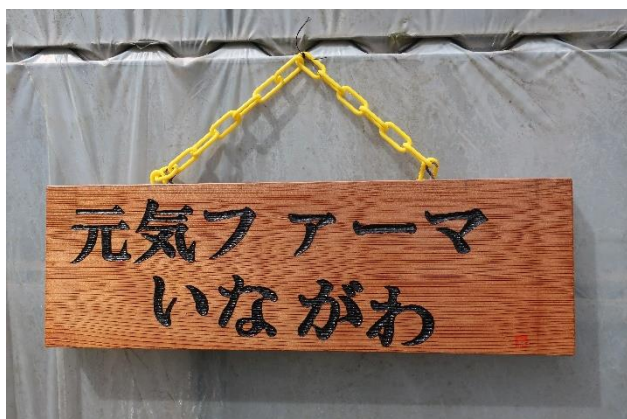 元気ファーマ
いながわ